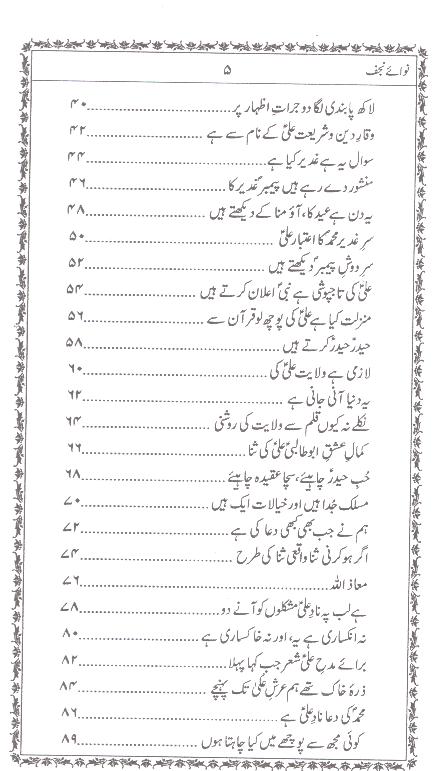 نوائے نجف ۵
لاکھ پابندی لگا دو جراتِ اظہار پر ۴۰
وقارِ دین و شریعت علیؑ کے نام سے ہے ۴۲
سوال یہ ہے غدیر کیا ہے ۴۴
منشور دے رہے ہیں پیمبرؐ غدیر کا ۴۶
یہ دن ہے عید کا، آؤ منا کے دیکھتے ہیں ۴۸
سرِ غدیر محمدؐ کا اعتبار علیؑ ۵۰
سرِ دوشِ پیمبرؐ دیکھتے ہیں ۵۲
علیؑ کی تاجپوشی ہے نبیؐ اعلان کرتے ہیں ۵۴
منزلت کیا ہے علیؑ کی پوچھ لو قرآن سے ۵۶
حیدرؑ حیدرؑ کرتے ہیں ۵۸
لازمی ہے ولایت علیؑ کی ۶۰
یہ دنیا آنی جانی ہے ۶۲
نکلے نہ کیوں قلم سے ولایت کی روشنی ۶۴
کمالِ عشقِ ابوطالبیؑ علیؑ کی ثنا ۶۶
حُبِ حیدرؑ چاہیئے، سچا عقیدہ چاہیئے ۶۸
مسلک جُدا ہیں اور خیالات ایک ہیں ۷۰
ہم نے جب بھی کبھی دعا کی ہے ۷۲
اگر ہو کرنی ثنا واقعی ثنا کی طرح ۷۴
معاذ اللہ ۷۶
ہے لب پہ نادِ علیؑ مشکلوں کو آنے دو ۷۸
نہ انکساری ہے یہ، اور نہ خاکساری ہے ۸۰
برائے مدحِ علیؑ شعر جب کہا پہلا ۸۲
ذرۂ خاک تھے ہم عرشِ عُلیٰ تک پہنچے ۸۴
محمدؐ کی دعا نادِ علیؑ ہے ۸۶
کوئی مجھ سے پوچھے میں کیا چاہتا ہوں ۸۹